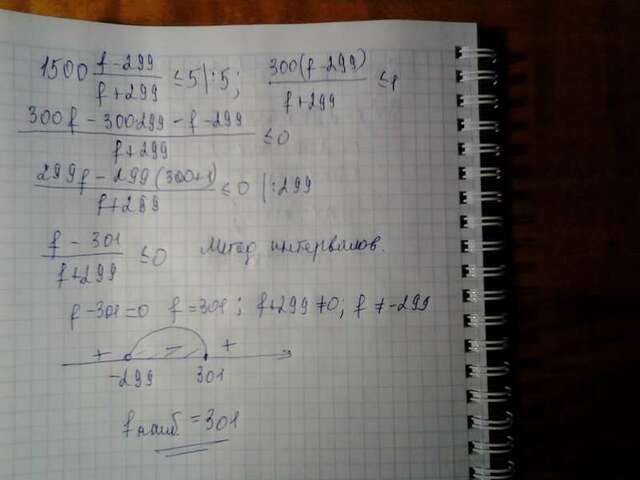 1500 (f-299)/(f+299) ≤ 5 | :5; 300(f-299)/(f+299) ≤ 1
(300f - 300·299 - f - 299)/(f+299) ≤ 0
(299f - 299(300+1))/(f+299) ≤ 0 | :299
(f - 301)/(f+299) ≤ 0 Метод интервалов.
f-301=0 f=301; f+299≠0; f≠-299
+ - +
-299 301
f наиб. = 301